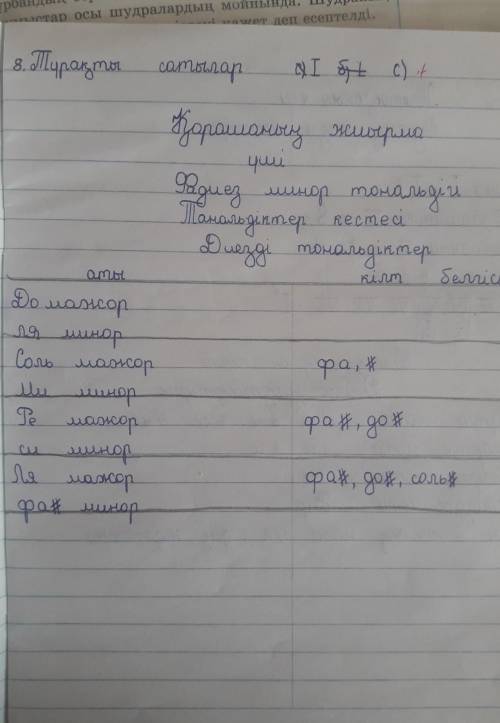 осы шудралардың мойнында.
қажет деп есептелді.
8. Тұрақты сатылар а) I б) t с) +
Қарашаның жиырма
үші
Фа диез минор тональдігі
Танальдіктер кестесі
Диезді тональдіктер
аты кілт белгісі
До мажор
ля минор
Соль мажор фа, #
Ми минор
Ре мажор фа#, до#
си минор
Ля мажор фа#, до#, соль#
фа# минор